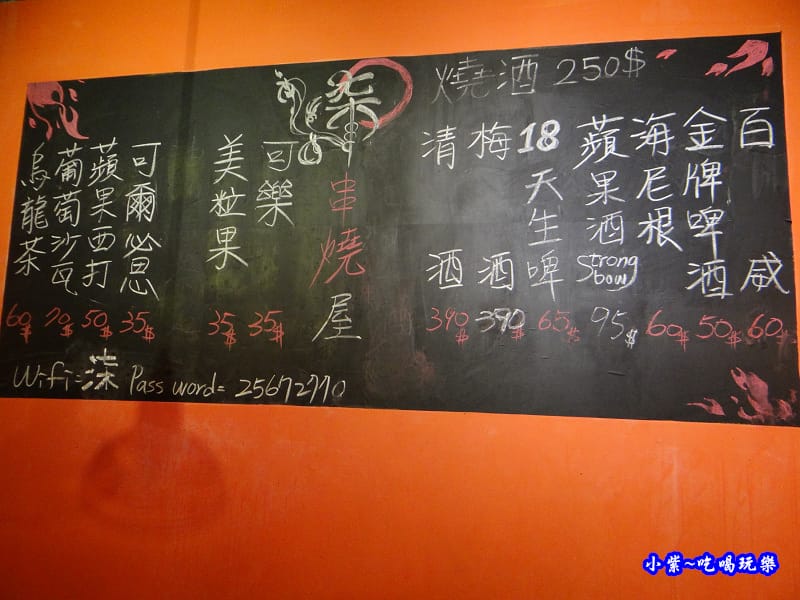 燒酒 250$
百威 60$
金牌啤酒 50$
海尼根 60$
蘋果酒 Strong bow 95$
18天生啤 65$
梅酒 390$
清酒 390$
柒串燒屋
可樂 35$
美粒果 35$
可爾必思 35$
蘋果西打 50$
葡萄沙瓦 70$
烏龍茶 60$
Wifi=柒 Password=25672770
小紫~吃喝玩樂